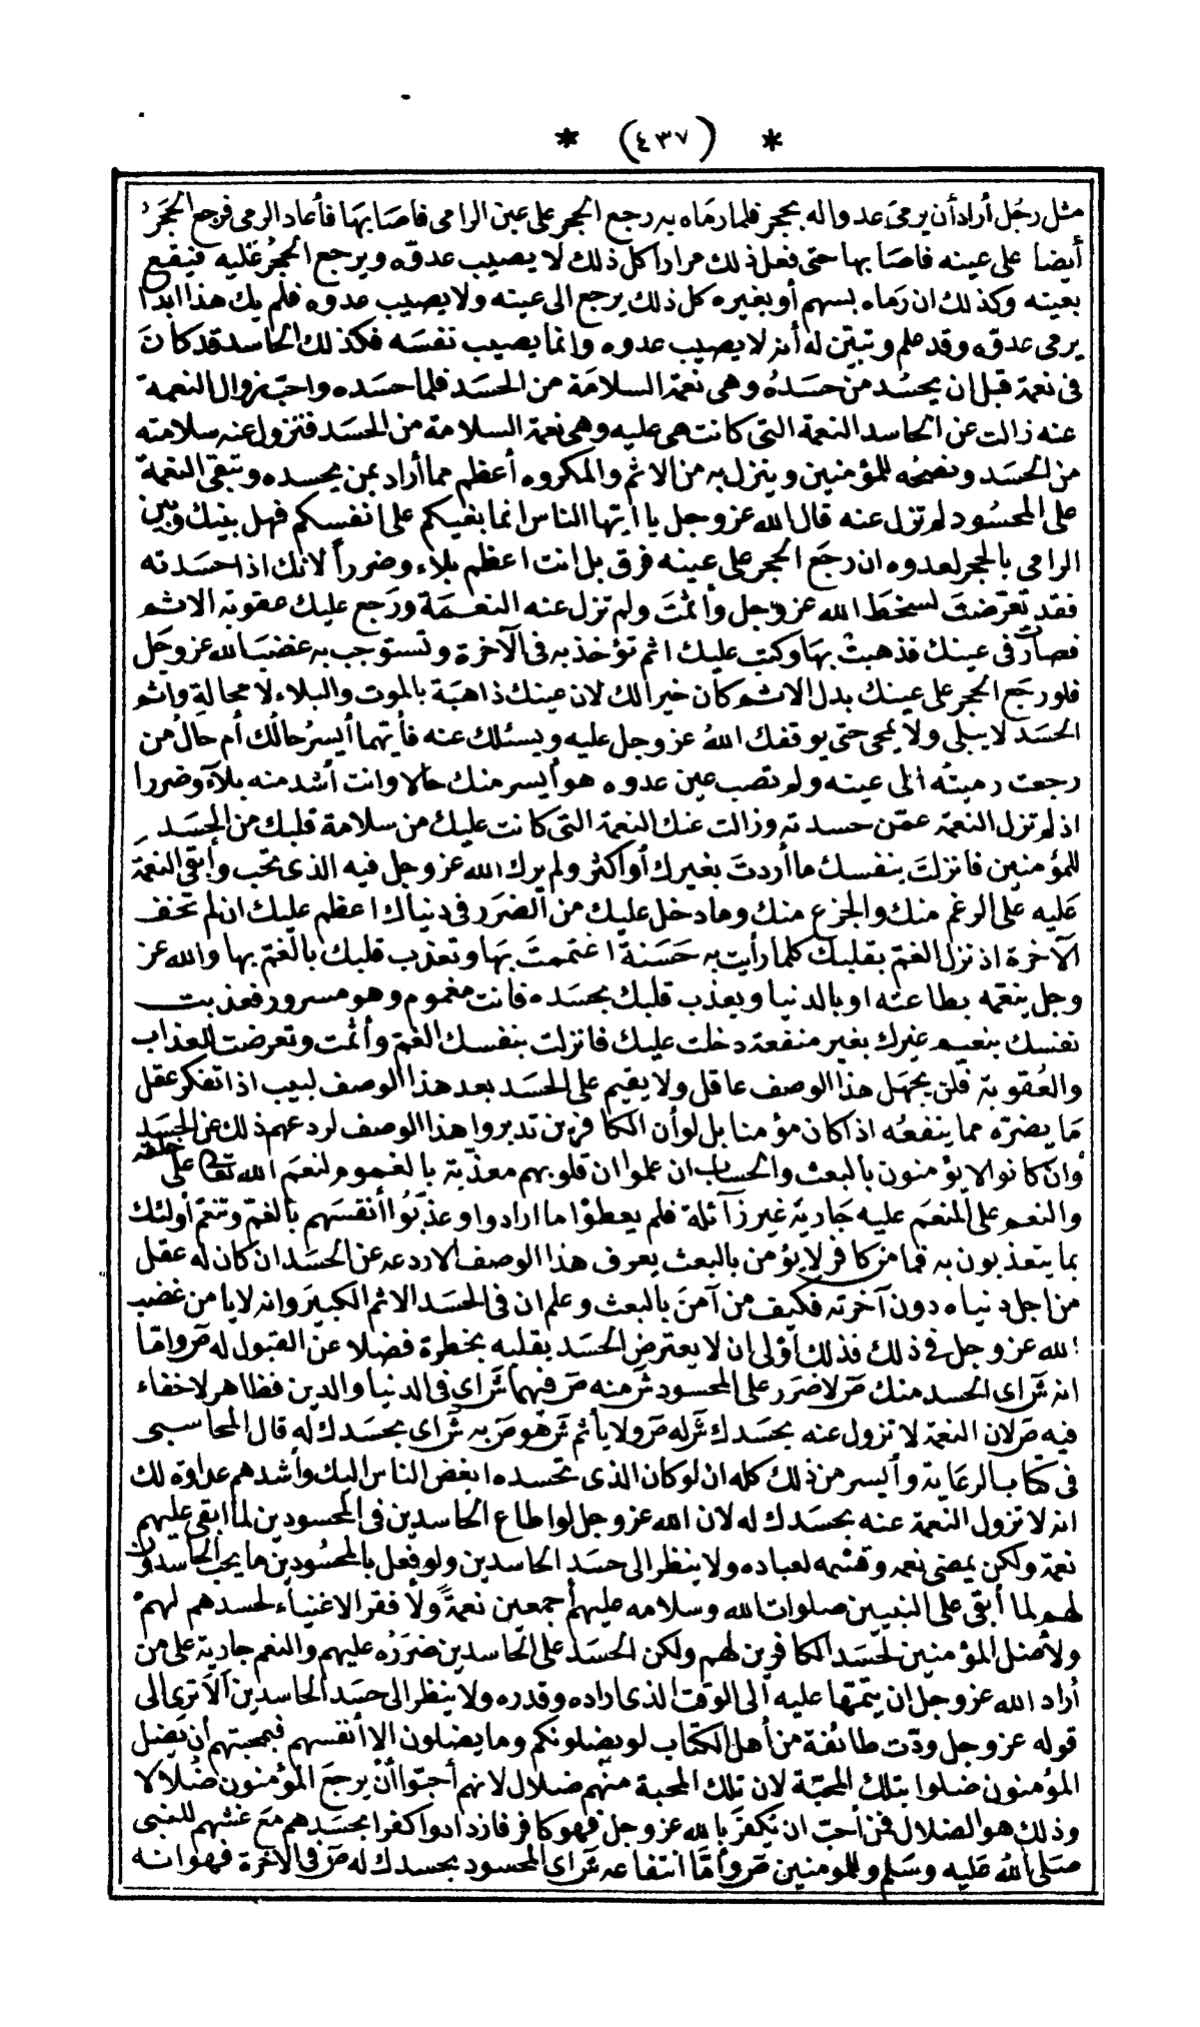 * (٤٣٧) *
مثل رجُل أراد أن يرمىَ عدوا له بحجر فلما رمَاه به رجع الحجر على عين الرامى فاصَابهَا فأعاد الرمى فرجع الحجَرُ
أيضا على عينه فاصَابها حتى فعل ذلك مرارا كل ذلك لا يصيب عدوّه ويرجع الحجرُ عَليه فيقع
بعينه وكذلك ان رَماه بسهم أو بغيره كل ذلك يرجع الى عينه ولا يصيب عدوه فلم يك هذا ابدا
يرمى عدوّه وقد علم وتبيّن له أنه لا يصيب عدوه وانما يصيب نفسَه فكذلك الحاسد قد كانَ
فى نعمة قبل ان يحسُد من حسَدهُ وهى نعمَة السلامَة من الحسَد فلما حسَده واحبّ زوال النعمة
عنه زالت عن الحاسد النعمة التى كانت هى عليه وهى نعمة السلامة من الحسَد فتزول عنه سلامته
من الحسَد ونصحُه للمؤمنين وينزل به من الاثم والمكروه أعظم مما أراد بمن يحسده وتبقى النعمة
على المحسُود لم تزل عنه قال الله عز وجل يا أيّها الناس انما بغيكم على انفسكم فهل بينك وبين
الرامى بالحجر لعدوه ان رجَع الحجر على عينه فرق بل انت اعظم بلاء وضرراً لانك اذا حسَدته
فقد تعرّضتَ لسخطَ الله عز وجل وأثمتَ ولم تزل عنه النعـمَة ورَجع عليك عقوبة الاثم
فصارَ فى عينك فذهبتْ بهَا وكتب عليك اثم تؤخذ به فى الآخرة وتستوجب به غضبَ الله عز وجَل
فلو رجَع الحجر على عينك بدل الاثم كان خيرا لك لان عينك ذاهبَة بالموت والبلاء لا محالة واثم
الحسَد لا يبلى ولا يمحى حتى يوقفك اللهُ عز وجل عليه ويسئلك عنه فأيّهما أيسرُ حالُك أم حالُ من
رجعت رميتُه الى عينه ولم تصب عين عدوه هو أيسر منك حالا وانت أشد منه بلآءً وضررا
اذ لم تزل النعمة عمّن حسدته وزالت عنك النعمة التى كانت عليك من سلامة قلبك من الحسَد
للمؤمنين فانزلتَ بنفسك ما أردتَ بغيرك أو اكثر ولم يرك الله عز وجل فيه الذى تحب وأبقى النعمَة
عَليه على الرغم منك والجزع منك وما دخل عليك من الضرَر فى دنياك اعظم عليك ان لم تخف
الآخرة اذ نزل الغمّ بقلبك كلما رأيت به حَسَنةً اغتممتَ بهَا وتعذب قلبك بالغمّ بها والله عز
وجل ينعّمه بطاعته او بالدنيا ويعذب قلبك بحسَده فانت مغموم وهو مسرور فعذبت
نفسك بنعيـم غيرك بغير منفعة دخلت عليك فانزلت بنفسك الغمّ وأثمت وتعرضت للعذاب
والعُقوبة فلن يجهَل هذا الوصف عاقل ولا يقيم على الحسَد بعد هذا الوصف لبيب اذا تفكر عقل
مَا يضرّه مما ينفعُه اذا كان مؤمنا بل لو أن الكافرين تدبروا هذا الوصف لردعهم ذلك عن الحسَد
وان كانوا لا يؤمنون بالبعث والحساب ان علموا ان قلوبهم معذبة بالغموم لنعمَ الله تعالى على خلقه
والنعم على المنعَم عليه جَاريَة غير زآئلة فلم يعطوْا ما ارادوا وعذّبُوا أنفسَهم بالغمّ وتنعّم أولئك
بما يتعذبون به فما من كافر لا يؤمن بالبعث يعرف هذا الوصف الا ردعه عن الحسَد ان كان له عقل
من اجل دنياه دون آخرته فكيف من آمنَ بالبعث وعلم ان فى الحسَد الاثم الكبيرَ وانه لا يأمن غضب
الله عز وجل فى ذلك فذلك أوْلى ان لا يعترض الحسَد بقلبه بخطرة فضلا عن القبول له صَ وامّا
انه شَ اى الحسد منك صَ لا ضَرَر على المحسود شَ منه صَ فيهما شَ اى فى الدنيا والدين فظاهر لا خفاء
فيه صَ لان النعمة لا تزول عنه بحسَدك شَ له صَ ولا يأثم شَ هو صَ به شَ اى بحسَدك له قال المحاسبى
فى كتاب الرعَاية وأيسر من ذلك كله ان لو كان الذى تحسده ابغض الناس اليك وأشدهم عداوة لك
انه لا تزول النعمة عنه بحسَدك له لان الله عز وجل لو اطاع الحاسدين فى المحسودين لما ابقى عليهم
نعمة ولكن يمضى نعمه وقسْمه لعباده ولا ينظر الى حسَد الحاسدين ولو فعل بالمحسُودين ما يحب الحاسدون
لهم لما أبقى على النبيين صلوات الله وسلامه عليهم أجمعين نعمةً ولأ فقر الاغنياء لحسدهم لهمْ
ولأضل المؤمنين لحسَد الكافرين لهم ولكن الحسَد على الحاسدين ضررُه عليهم والنعم جارية على من
أراد الله عز وجل ان يتمّها عليه الى الوقت الذى اراده وقدره ولا ينظر الى حسَد الحاسدين ألا ترى الى
قوله عز وجل ودّت طائفة من أهل الكتاب لو يضلونكم وما يضلون الا أنفسهم فبمحبتهم أن يَضل
المؤمنون ضلوا بتلك المحبّة لان تلك المحبة منهم ضلال لانهم أحبّوا أنْ يرجعَ المؤمنون ضُلاّلا
وذلك هو الضلال فمن أحبّ ان يَكفرَ بالله عز وجل فهو كافر فازدادوا كفرا بحسَدهم مَعَ غشهم للنبى
صَلى اللهُ عَليه وسَلم وللمومنين صَ وأمّا انتفاعه شَ اى المحسود بحسدك له صَ فى الآخرة فهو انـه